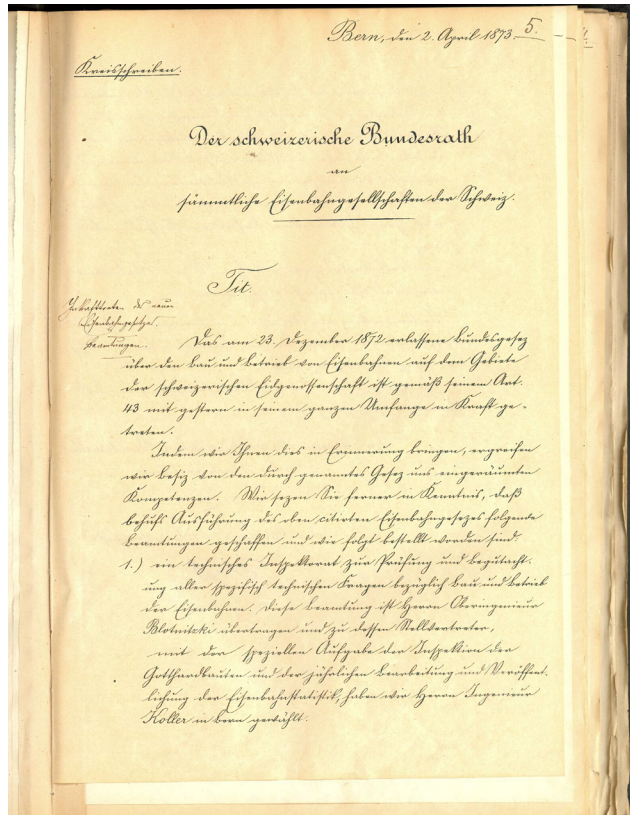 Bern, den 2. April 1873.
5.
Kreisschreiben.
Der schweizerische Bundesrath
an
sämmtliche Eisenbahngesellschaften der Schweiz.
Tit.
Inkrafttreten des neuen
Eisenbahngesetzes.
Beamtungen.
Das am 23. Dezember 1872 erlassene Bundesgesez
über den Bau und Betrieb von Eisenbahnen auf dem Gebiete
der schweizerischen Eidgenossenschaft ist gemäß seinem Art.
43 mit gestern in seinem ganzen Umfange in Kraft ge-
treten.
Indem wir Ihnen dies in Erinnerung bringen, ergreifen
wir Besiz von den durch genanntes Gesez uns eingeräumten
Kompetenzen. Wir sezen Sie ferner in Kenntnis, daß
behufs Ausführung des oben citirten Eisenbahngesezes folgende
Beamtungen geschaffen und wie folgt bestellt worden sind:
1.) ein technisches Inspektorat zur Prüfung und Begutacht-
ung aller spezifisch technischen Fragen bezüglich Bau und Betrieb
der Eisenbahnen. Diese Beamtung ist Herrn Oberingenieur
Blotnitzki übertragen und zu dessen Stellvertreter,
mit der speziellen Aufgabe der Inspektion der
Gotthardbauten und der jährlichen Bearbeitung und Veröffent-
lichung der Eisenbahnstatistik, haben wir Herrn Ingenieur
Koller in Bern gewählt.